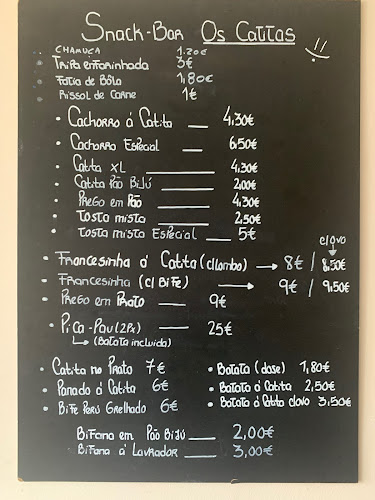 Snack-Bar Os Catitas
CHAMUÇA 1.20€
TRIPA ENFARINHADA 3€
FATIA DE BÔLA 1,80€
RISSOL DE CARNE 1€
• CACHORRO á Catita __ 4,30€
• CACHORRO ESPECIAL __ 6,50€
• Catita XL ____ 4,30€
• Catita PÃO BIJÚ ____ 2,00€
• PREGO em PÃO ____ 4,30€
• TOSTA MISTA ____ 2,50€
• TOSTA MISTA ESPECIAL __ 5€
c/ovo
↓
• FRANCESINHA á Catita (c/lombo) → 8€ / 8,50€
• FRANCESINHA (c/ BIFE) → 9€ / 9,50€
• PREGO em PRATO — 9€
• PICA-PAU (2Px) — 25€
↳ (BATATA incluida)
• Catita no PRATO 7€
• PANADO á Catita 6€
• BIFE PERÚ GRELHADO 6€
• BATATA (dose) 1,80€
• BATATA á Catita 2,50€
• BATATA á Catita c/ovo 3,50€
BIFANA em PÃO BIJÚ __ 2,00€
BIFANA á LAVRADOR __ 3,00€